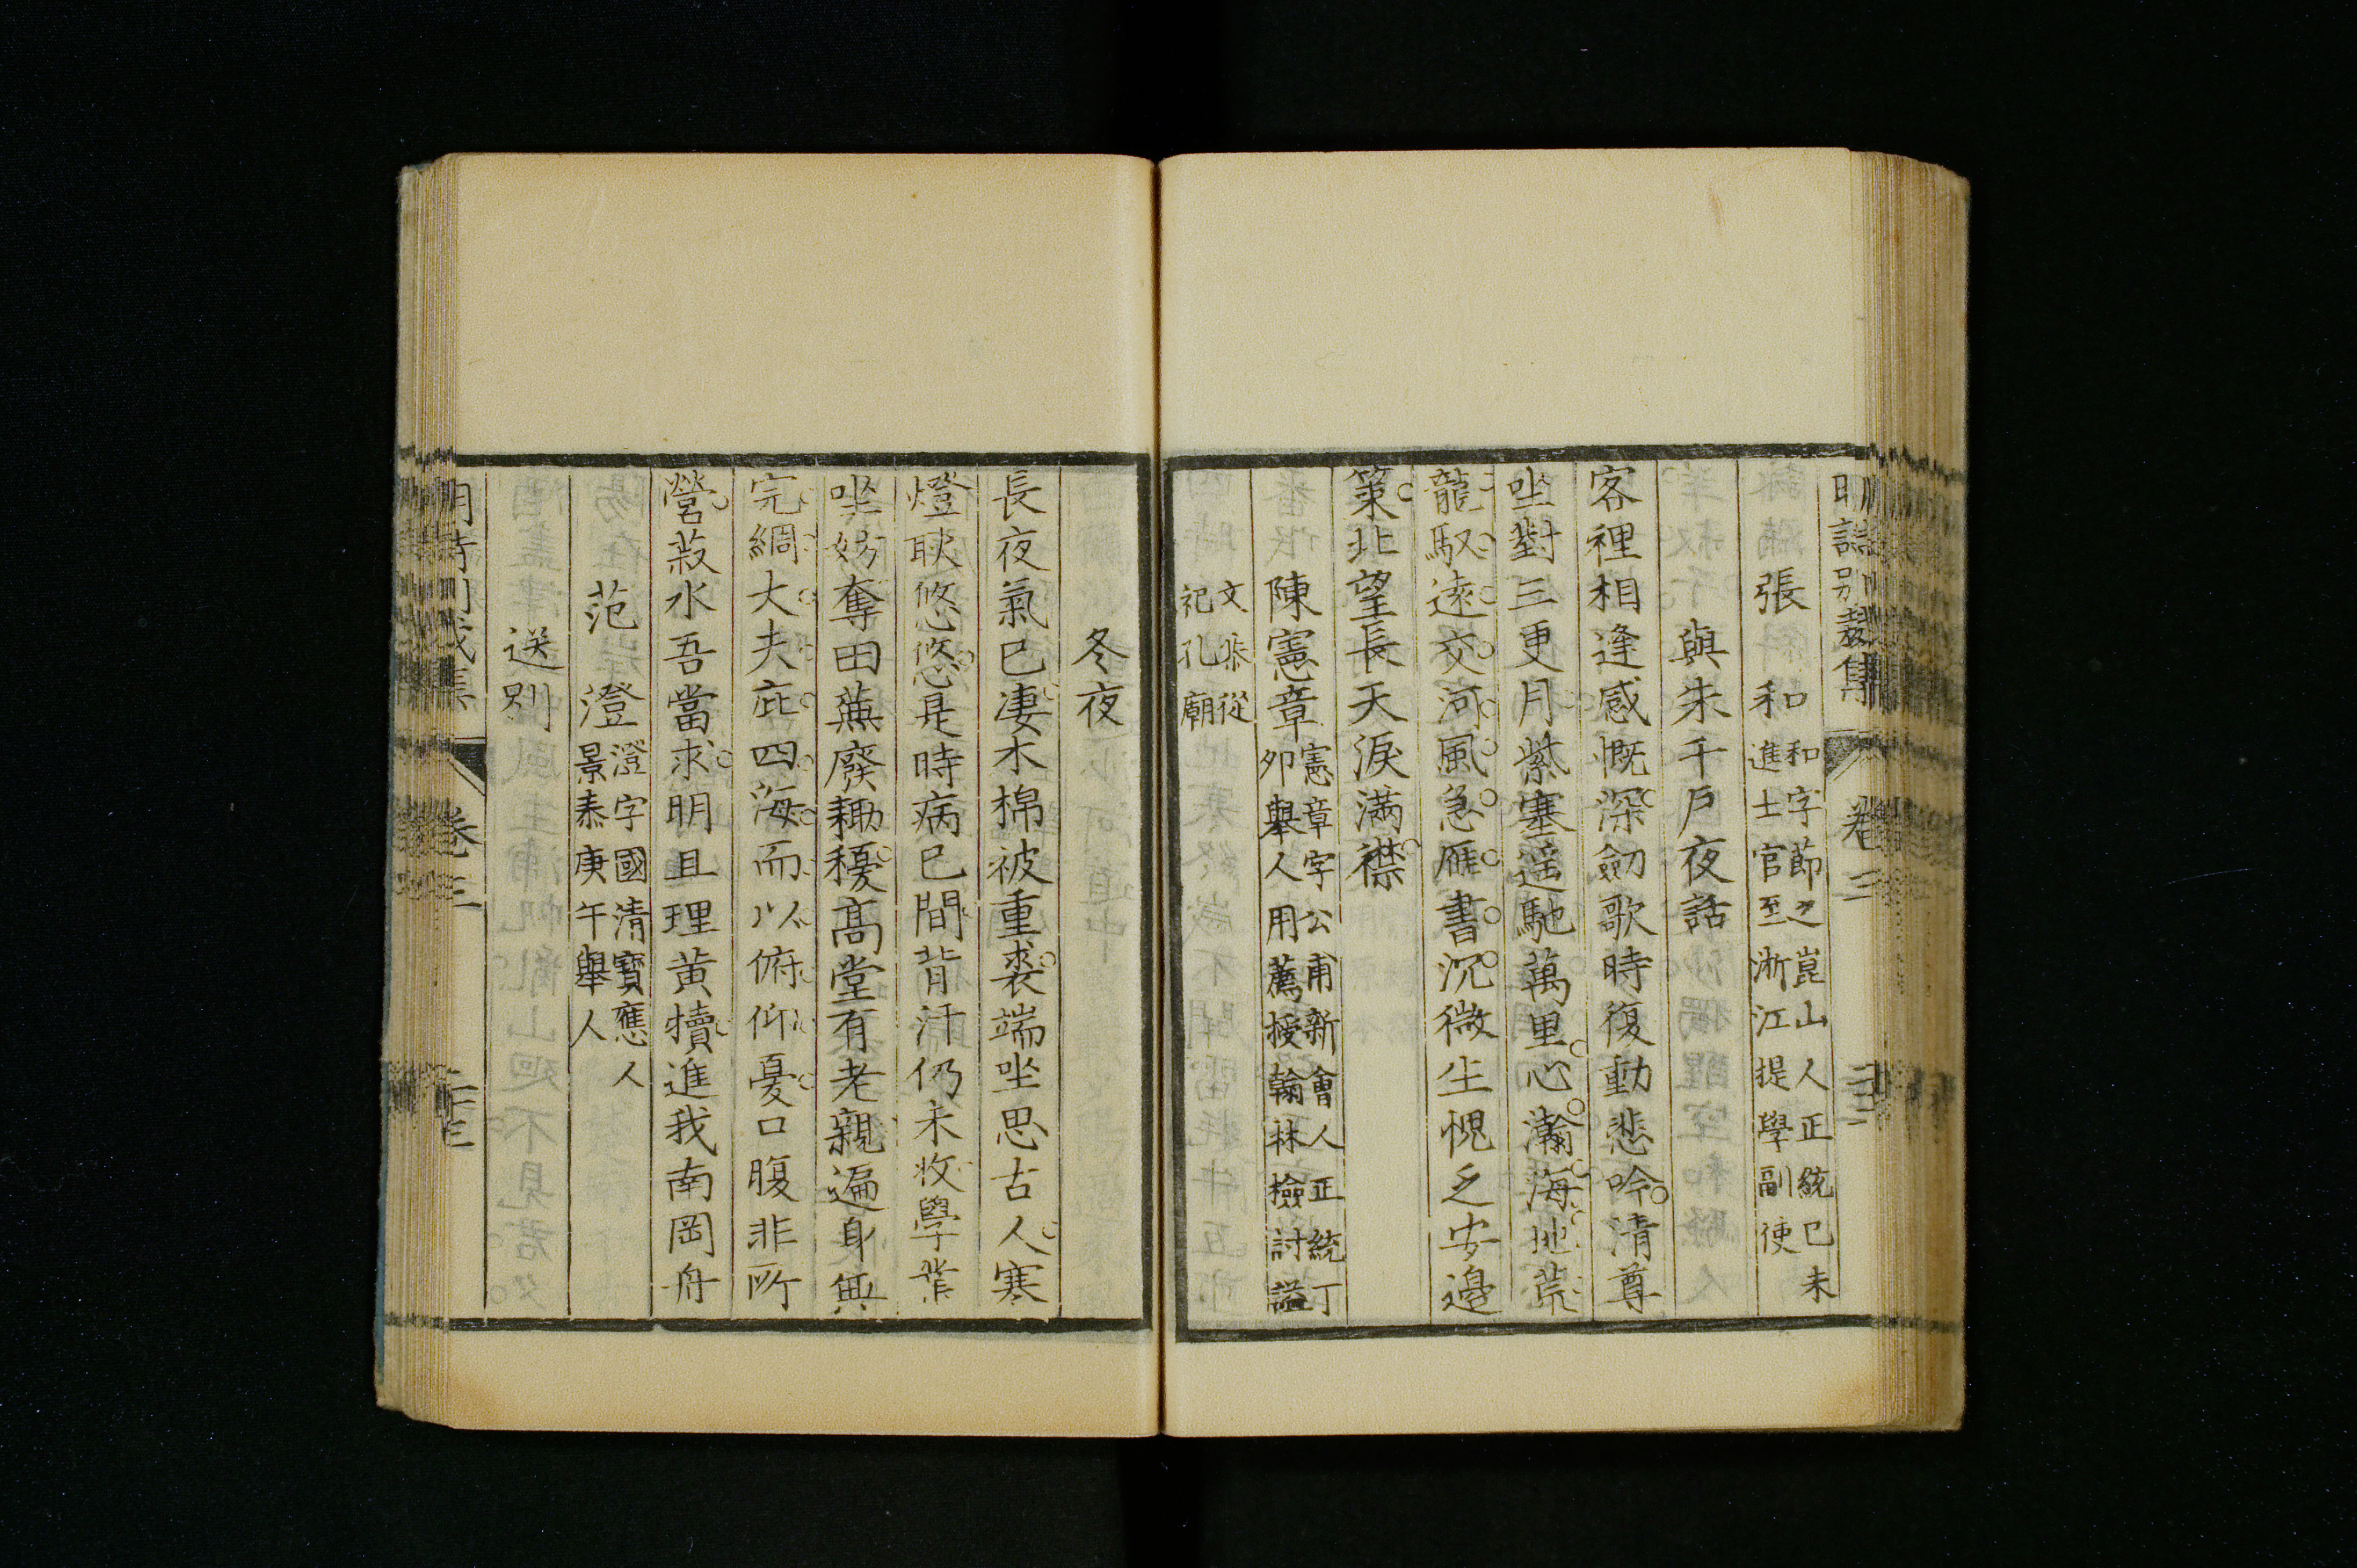 明詩別裁集 卷三
張和 和字節之崑山人正統己未
進士官至浙江提學副使
與朱千戶夜話
客裡相逢感慨深劒歌時復動悲吟清尊
坐對三更月紫塞遥馳萬里心瀚海地荒
龍馭遠交河風急雁書沉微生愧乏安邊
策北望長天淚滿襟
陳憲章 憲章字公甫新會人正統丁
卯舉人用薦授翰林檢討謚
文恭從
祀孔廟
冬夜
長夜氣已凄木棉被重裘端坐思古人寒
燈耿悠悠是時病已間背汗仍未收學業
坐妨奪田蕪廢耡耰高堂有老親遍身無
完綢大夫庇四海而以俯仰憂口腹非所
營菽水吾當求明且理黃犢進我南岡舟
范澄 澄字國清寶應人
景泰庚午舉人
送別
明詩別裁集 卷三